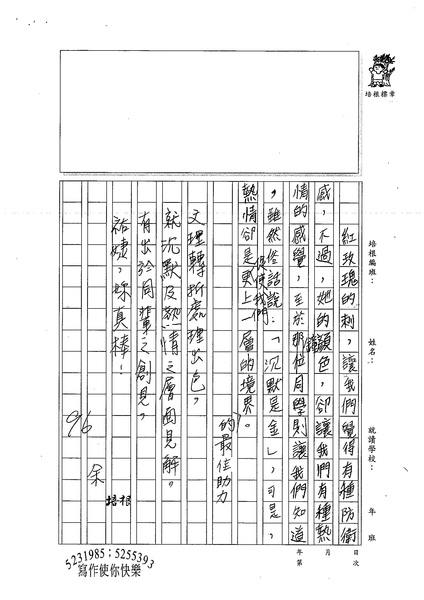 培根標章
培根編班：
姓名：
就讀學校：
年
班
年
月
日
第
次
紅玫瑰的刺，讓我們覺得有種防衛
感，不過，她的顏色，卻讓我們有種熱
情的感覺，至於那位同學則讓我們知道
，雖然俗話說：「沉默是金」，可是，
熱情卻是更上一層的境界。
促使我們
的最佳助力
文理轉折處理出色，
就沉默及熱情之層面見解。
有出於同輩之創見，
祐婕，妳真棒！
96
余
培根
5231985；5255393
寫作使你快樂